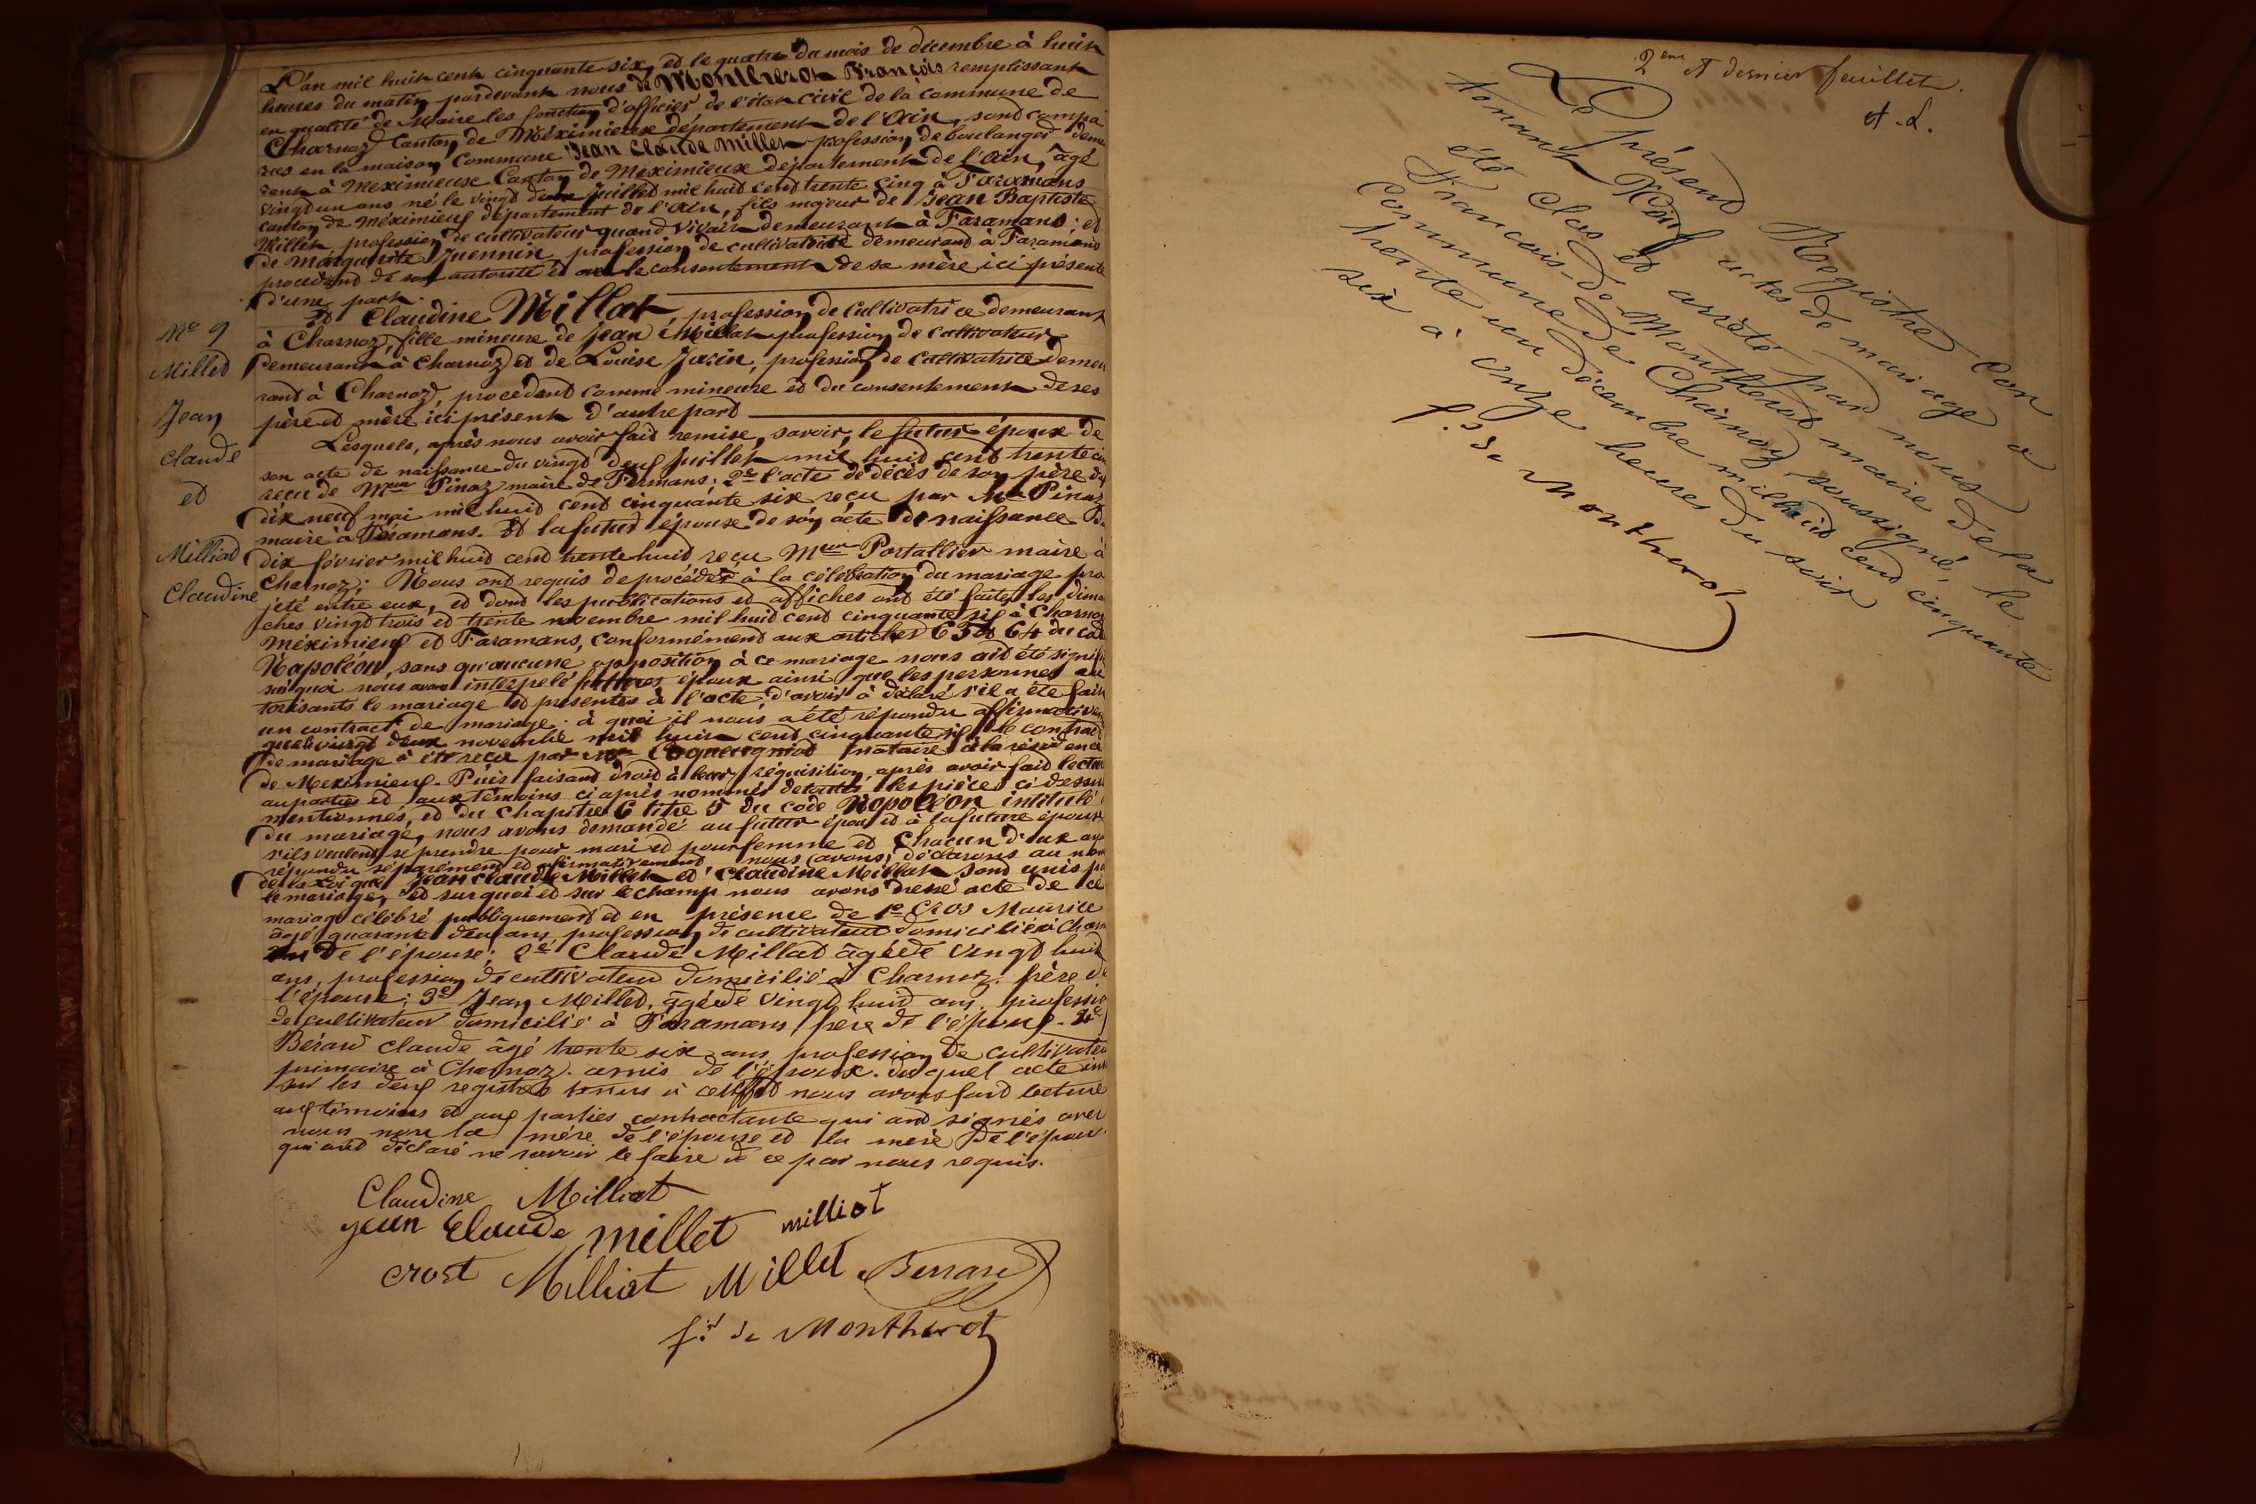 L'an mil huit cent cinquante six, et le quatre du mois de décembre à huit
heures du matin pardevant nous de Montherot François remplissant
en qualité de Maire les fonction d'officier de l'état civil de la commune de
Charnoz Canton de Méximieux département de l'Ain, sont compa
rus en la maison Commune Jean Claude Millet profession de boulanger deme
rant à Meximieux Canton de Meximieux département de l'Ain, âgé
vingt un ans né le vingt deux Juillet mil huit cent trente cinq à Faramans
canton de Méximieux département de l'Ain, fils majeur de Jean Baptiste
Millet profession de cultivateur quand vivait demeurant à Faramans; et
de Marguerite Juennin profession de cultivatrice demeurant à Faramans
procédant de son autorité et avec le consentement de sa mère ici présente
d'une part.
Et Claudine Millat, profession de Cultivatrice demeurant
à Charnoz, fille mineure de Jean Millat profession de cultivateur
demeurant à Charnoz et de Louise Jacin, profession de Cultivatrice demeu
rant à Charnoz, procédant comme mineure et du consentement de ses
père et mère ici présent d'autre part
Nº 9
Millet
Jean
Claude
et
Milliat
Claudine
Lesquels, après nous avoir fait remise, savoir, le futur époux de
son acte de naissance du vingt deux Juillet mil huit cent trente cin
reçu de Mr Pinaz maire de Fermans; 2e l'acte de décès de son père du
dix neuf mai mil huit cent cinquante six reçu par Mr Pinaz
maire à Faramans. Et la futur épouse de son acte de naissance du
dix février mil huit cent trente huit reçu Mr Portallier maire à
Charnoz; Nous ont requis de procéder à la célébration du mariage pro
jeté entre eux, et dont les publications et affiches ont été faites les diman
ches vingt trois et trente novembre mil huit cent cinquante six à Charnoz
Méximieux et Faramans, conformément aux articles 63 et 64 du cod
Napoléon, sans qu'aucune opposition à ce mariage nous ait été signifi
sur quoi nous avons interpelé futures époux ainsi que les personnes au
torisants le mariage et présentes à l'acte, d'avoir à déclaré s'il a été fait
un contract de mariage. à quoi il nous a été répondu affirmativem
que le vingt deux novembre mil huit cent cinquante six le contrat
de mariage à été reçu par Mr notaire à la résidence
de Meximieux. Puis faisant droit à leur réquisition, après avoir fait lecture
au parties et aux témoins ci après nommés de toutes les pièces ci dessus
mentionnés, et du Chapitre 6 titre 5 du code Napoléon intitulé
du mariage, nous avons demandé au futur époux et à la future épouse
s'ils veulent se prendre pour mari et pour femme et chacun d'eux aya
répondu séparément et affirmativement nous (avons) déclarons au nom
de la Loi que Jean claude Millet et Claudine Millat sont unis par
le mariage, et sur quoi et sur le champ nous avons dressé acte de ce
mariage célébré publiquement et en présence de 1º Cros Maurice
agé quarante deux ans profession de cultivateur domicilié à Charn
de l'épouse; 2e Claude Millat âgé de vingt huit
ans, profession de cultivateur domicilié à Charnoz. frère de
l'épouse; 3e Jean Millet, âgé de vingt huit ans. professio
de cultivateur domicilié à Faramans frère de l'époux. 4e
Bérard Claude âgé trente six ans profession de cultivateu
primaire à Charnoz. amis de l'époux. duquel acte
sur les deux registres tenus à cet effet nous avons fait lecture
aux témoins et aux parties contractante qui ont signés avec
nous non la mère de l'épouse et la mère de l'époux
qui ont déclaré ne savoir le faire de ce par nous requis.
Claudine Milliat
jean Claude millet milliat
crost Milliat Millet Berrard
f. de Montherot
2eme et dernier feuillet.
A. L.
Le présent Registre Con
tenant Neuf actes de mariage a
été clos et arrêté par nous
Francois-de-Montherot maire de la
Commune de Charnoz soussigné, le
trente un décembre mil huit cent cinquante
six à onze heures du soir
f. de Montherot